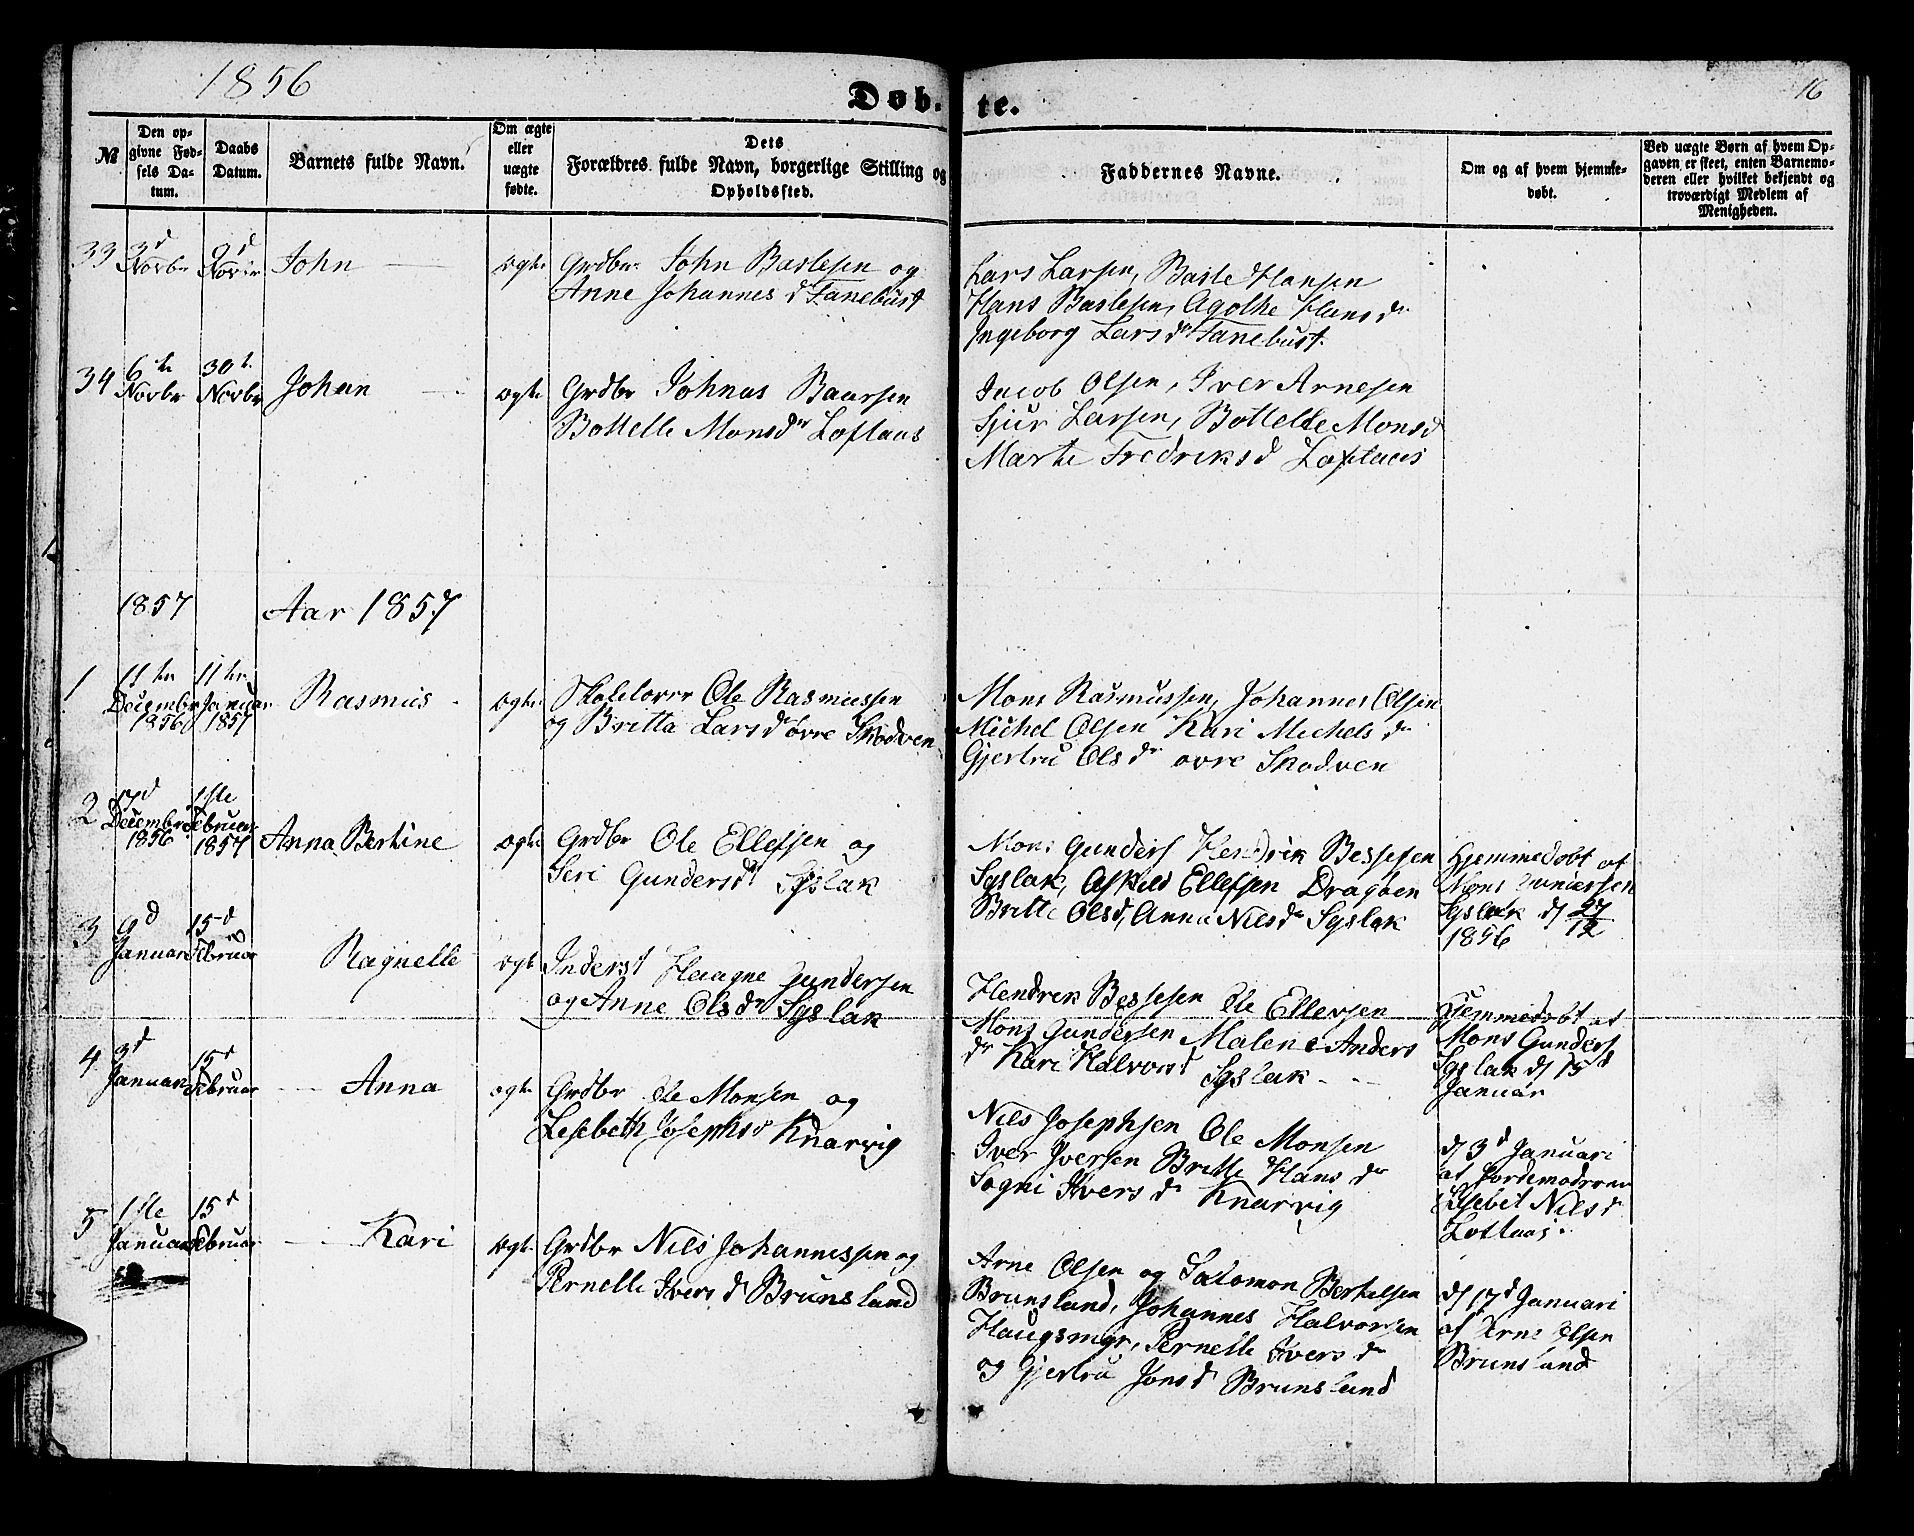 1856
Døb. te.
16
№
Den op-
givne Fød-
sels Da-
tum.
Daabs
Datum.
Barnets fulde Navn.
Om ægte
eller
uægte
fødte.
Dets
Forældres fulde Navn, borgerlige Stilling og
Opholdssted.
Faddernes Navne.
Om og af hvem hjemme-
døbt.
Ved uægte Børn af hvem Op-
gaven er skeet, enten Barnemo-
deren eller hvilket bekjendt og
troværdigt Medlem af
Menigheden.
33 3d Novbr 9d Novbr John ægte Grdbr John Barlesen og
Anne Johannes d Tanebust
Lars Larsen, Barle Hansen
Hans Barlesen, Agothe Hans dr
Ingeborg Lars dr Tanebust.
34 6te Novbr 30te Novbr Johan ægte Grdbr Johnas Baarsen
Bottelle Monsdr Loftaas
Jacob Olsen, Iver Arnesen
Sjur Larsen, Bottelle Monsd
Marte Fredriksd Loftaas
1857 Aar 1857
1 11te Decembr 1856 11te Januar 1857 Rasmus ægte Skolelærer Ole Rasmussen
og Britta Lars dr øvre Skodven
Mons Rasmussen, Johannes Olsen
Michel Olsen Kari Michels dr
Gjertru Ols dr øvre Skodven
2 17d Decembr 1856 1ste Februar 1857 Anna Bertine ægte Grdbr Ole Ellefsen og
Seri Gundersd Syslak
Mons Gunders Hendrik Bessesen
Syslak, Askild Ellefsen Dragøen
Britte Olsd, Anna Nilsdr Syslak
Hjemmedøbt af
Mons Gundersen
Syslak d 27/12
1856
3 9d Januar 15d Februar Ragnelle ægte Inderst Haagne Gundersen
og Anne Olsdr Syslak
Hendrik Bessesen Ole Ellevsen
Mons Gundersen Malene Anders
dr Kari Halvorsd Syslak
Hjemmedøbt af
Mons Gunders
Syslak d 15d
Januar
4 3d Januar 15d Februar Anna ægte Grdbr Ole Monsen og
Lesebeth Josephsd Knarvig
Nils Josephsen Ole Monsen
Iver Iversen Britte Hans dr
Sogni Ivers dr Knarvig
d 3d Januari
af Jordemodren
Lisebet Nilsd
Loftaas.
5 1ste Januar 15d Februar Kari ægte Grdbr Nils Johannessen og
Pernelle Ivers d Brunsland
Arne Olsen og Salomon Bertelsen
Brunsland, Johannes Halvorsen
Haugsmyr, Pernelle Ivers dr
og Gjertru Jonsd Brunsland
d 17d Januari
af Arne Olsen
Brunsland